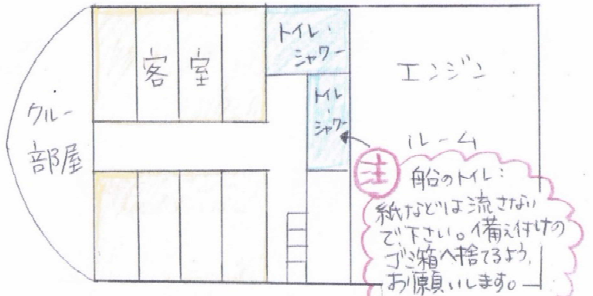 クルー
部屋
客室
トイレ・
シャワー
トイレ
・
シャワー
エンジン
ルーム
注
船のトイレ:
紙などは流さない
で下さい。備え付けの
ゴミ箱へ捨てるよう、
お願いします。